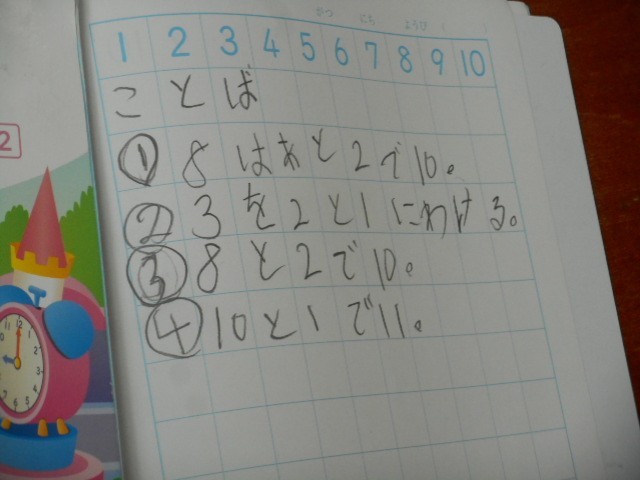 がつ にち ようび ( )
1 2 3 4 5 6 7 8 9 10
ことば
① 8はあと2で10。
② 3を2と1にわける。
③ 8と2で10。
④ 10と1で11。
2
12